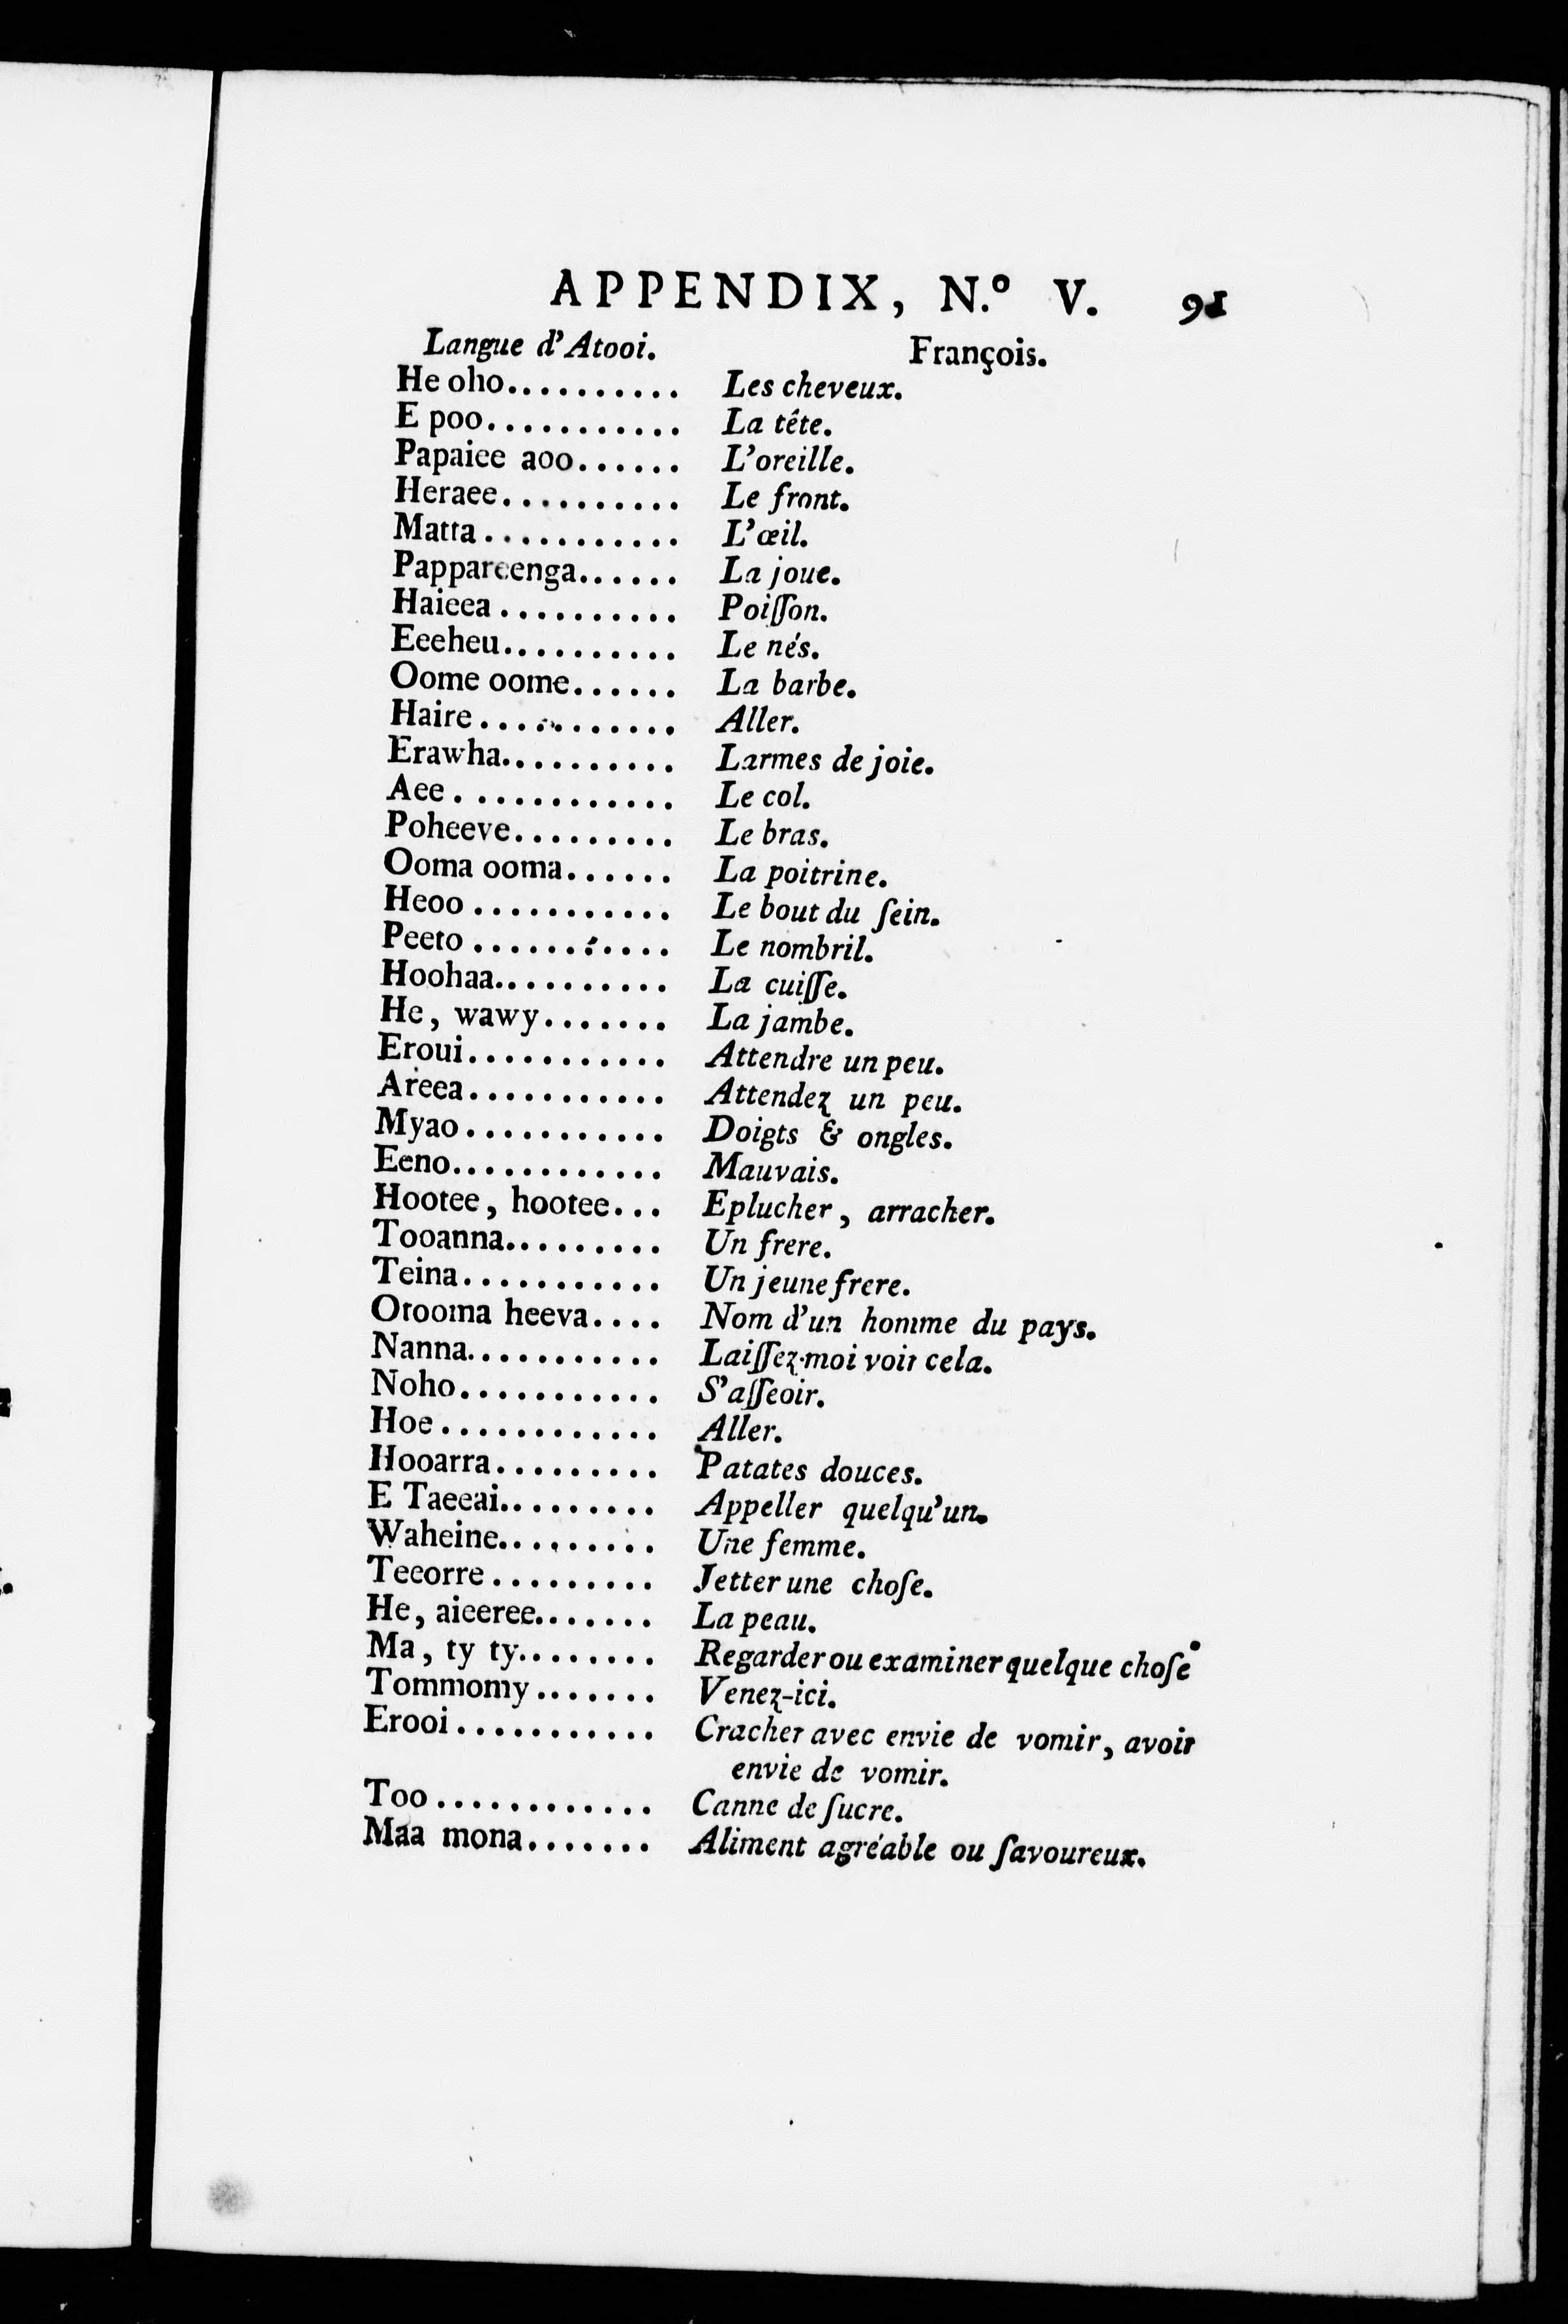 APPENDIX, N.º V. 91
Langue d'Atooi. François.
He oho.......... Les cheveux.
E poo........... La tête.
Papaiee aoo...... L'oreille.
Heraee.......... Le front.
Matta........... L'œil.
Pappareenga...... La joue.
Haieea.......... Poiſſon.
Eeeheu.......... Le nés.
Oome oome...... La barbe.
Haire........... Aller.
Erawha.......... Larmes de joie.
Aee............ Le col.
Poheeve......... Le bras.
Ooma ooma...... La poitrine.
Heoo........... Le bout du ſein.
Peeto........... Le nombril.
Hoohaa.......... La cuiſſe.
He, wawy....... La jambe.
Eroui........... Attendre un peu.
Areea........... Attendez un peu.
Myao........... Doigts & ongles.
Eeno............ Mauvais.
Hootee, hootee... Eplucher, arracher.
Tooanna......... Un frere.
Teina........... Un jeune frere.
Otooma heeva.... Nom d'un homme du pays.
Nanna........... Laiſſez-moi voir cela.
Noho........... S'aſſeoir.
Hoe............ Aller.
Hooarra......... Patates douces.
E Taeeai......... Appeller quelqu'un.
Waheine......... Une femme.
Teeorre......... Jetter une choſe.
He, aieeree....... La peau.
Ma, ty ty........ Regarder ou examiner quelque choſe.
Tommomy....... Venez-ici.
Erooi........... Cracher avec envie de vomir, avoir
envie de vomir.
Too............ Canne de ſucre.
Maa mona....... Aliment agréable ou ſavoureux.